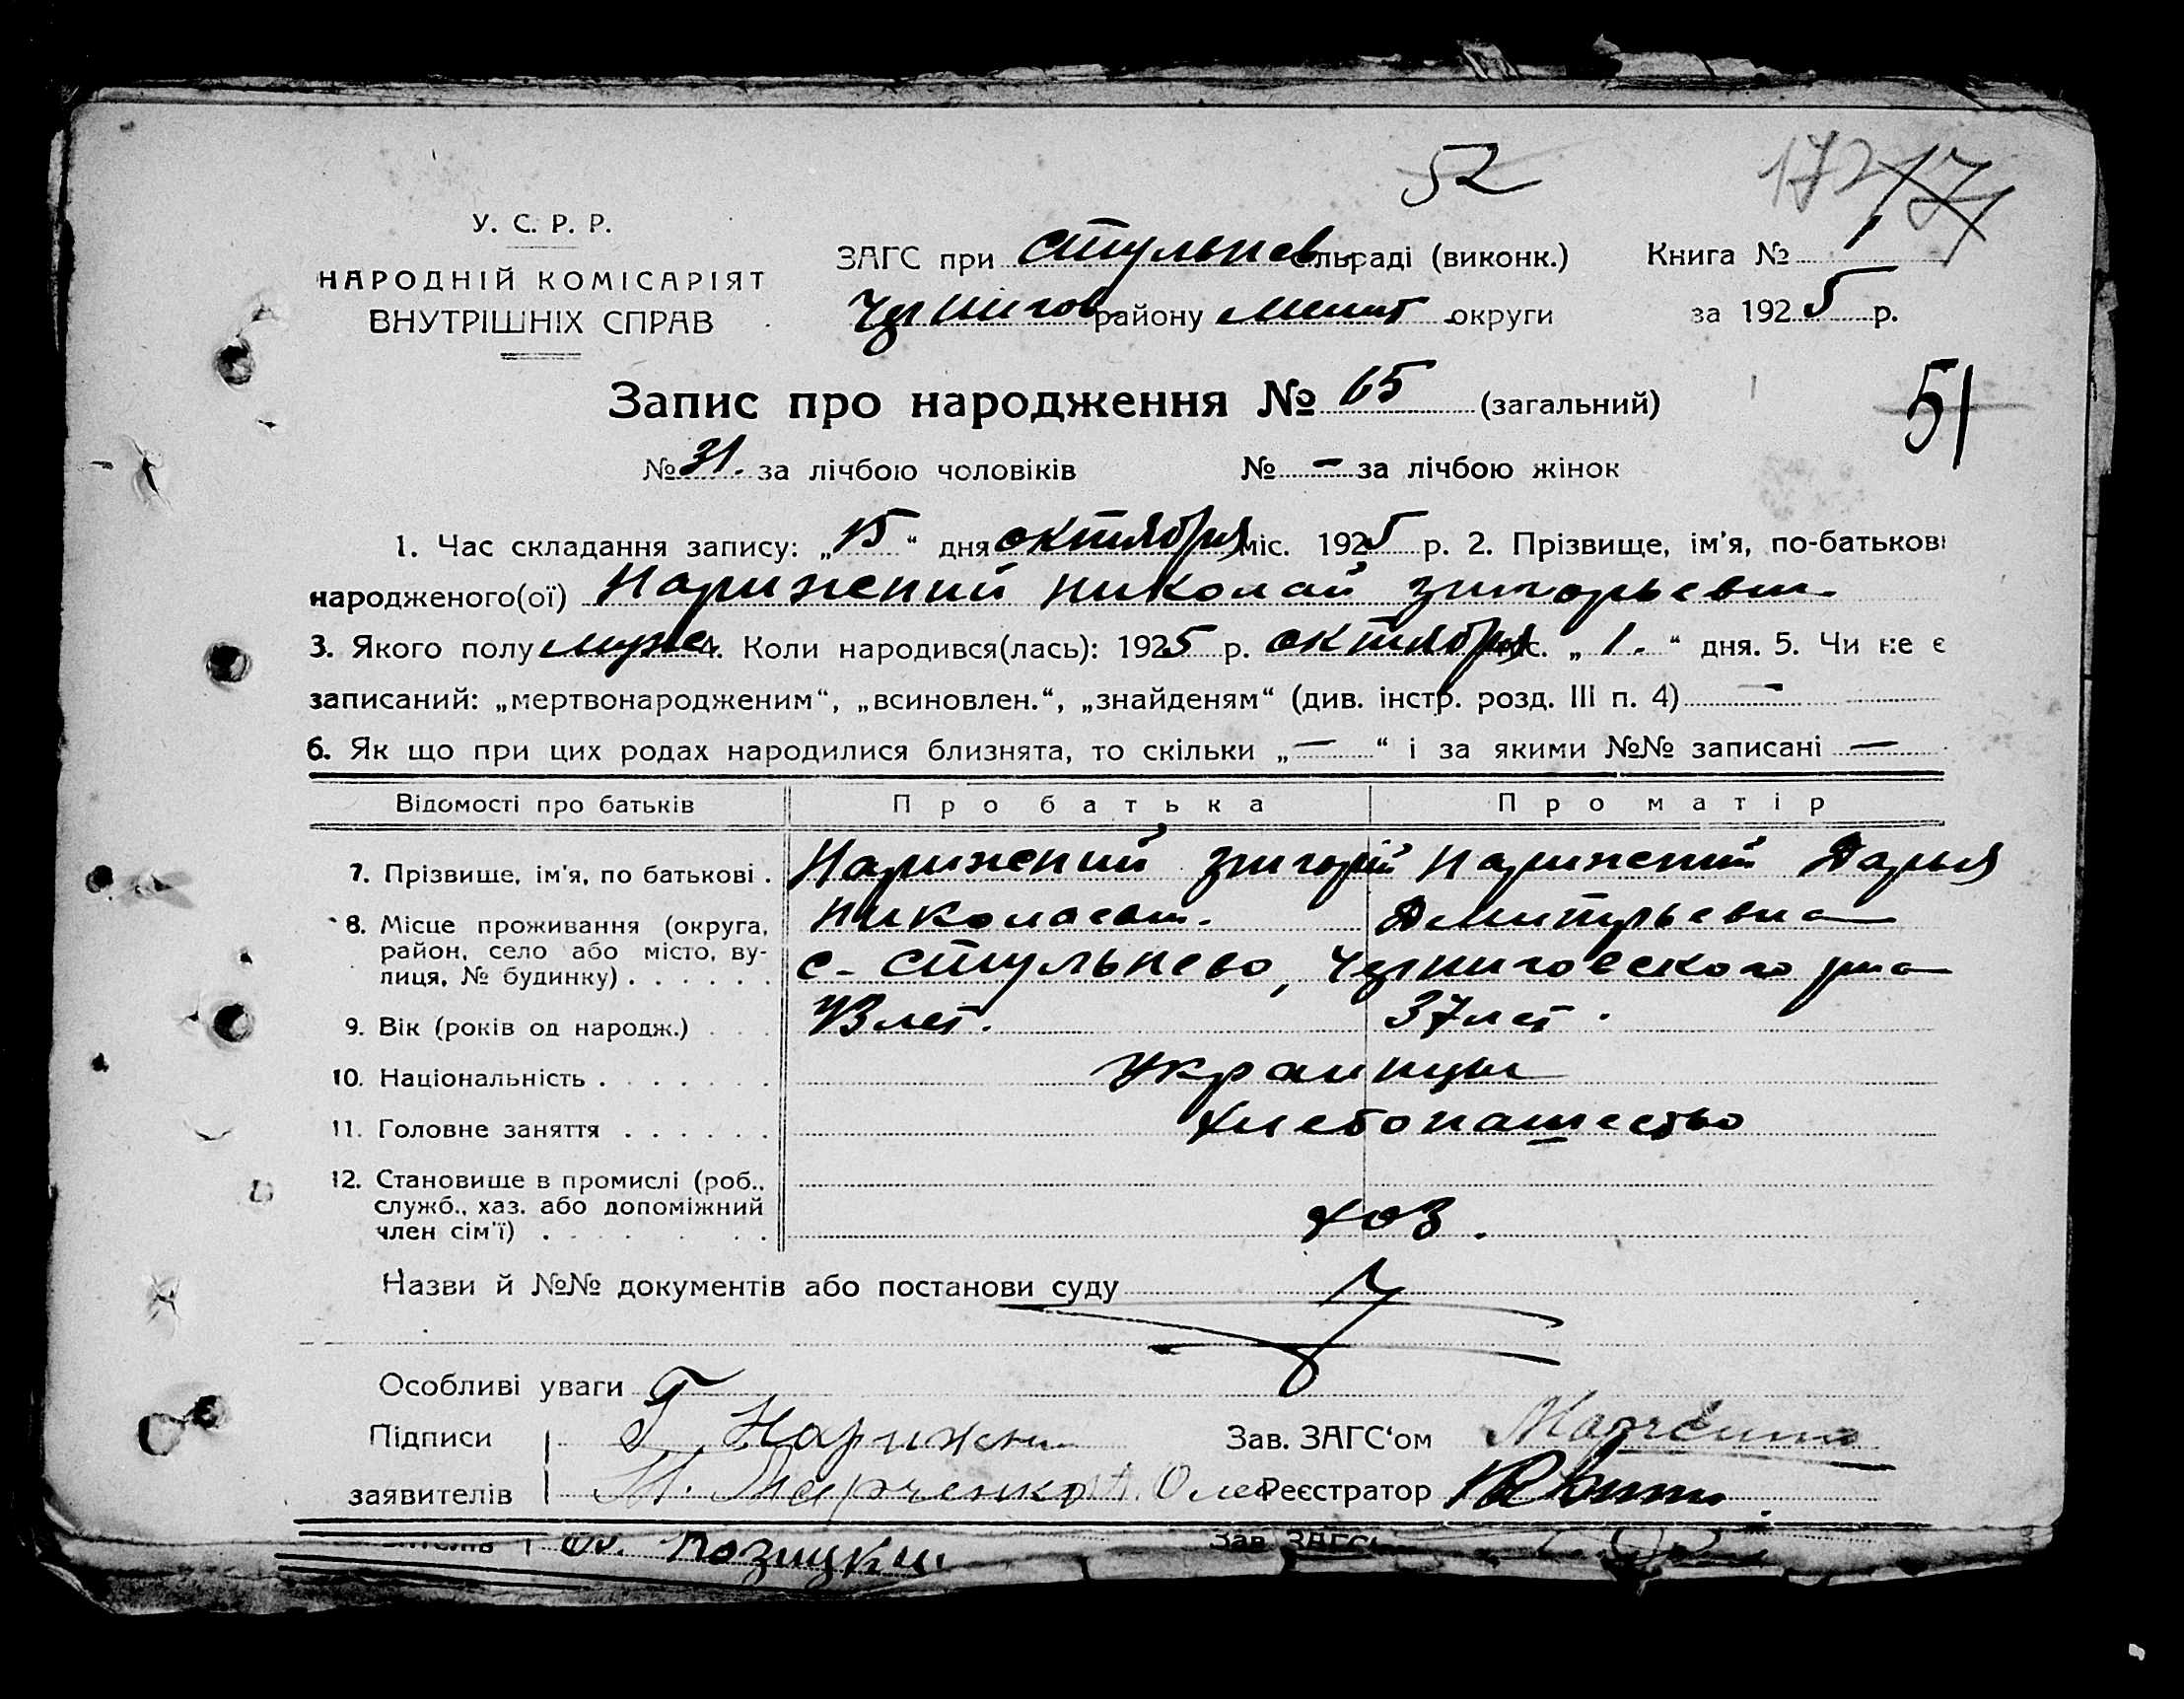 52
172 17
У. С. Р. Р.
НАРОДНІЙ КОМІСАРІЯТ
ВНУТРІШНІХ СПРАВ
ЗАГС при Стульнев сільраді (виконк.) Книга № 1
Чернигов району Мелит округи за 1925 р.
Запис про народження № 65 (загальний)
51
№ 31. за лічбою чоловіків № — за лічбою жінок
1. Час складання запису: „15“ дня октября міс. 1925 р. 2. Прізвище, ім'я, по-батькові
народженого(ої) Нарижений Николай Григорьевич
3. Якого полу мужс. 4. Коли народився(лась): 1925 р. октября міс. „1.“ дня. 5. Чи не є
записаний: „мертвонародженим“, „всиновлен.“, „знайденям“ (див. інстр. розд. III п. 4) —
6. Як що при цих родах народилися близнята, то скільки „—“ і за якими №№ записані —
Відомості про батьків Про батька Про матір
7. Прізвище, ім'я, по батькові . Нарижений Григорій Нарижений Дарья
Николаевич. Дмитрьевна
8. Місце проживання (округа,
район, село або місто, ву-
лиця, № будинку) . . . . . . с. Стульнево, Черниговского р-на
9. Вік (років од народж.) . . 43 лет. 37 лет.
10. Національність . . . . . . . Украинцы
11. Головне заняття . . . . . . Хлебопашество
12. Становище в промислі (роб.,
служб., хаз. або допоміжний
член сім'ї) . . . . . . . хоз.
Назви й №№ документів або постанови суду
Особливі уваги
Підписи Г Нарижени Зав. ЗАГС'ом
заявителів М. Марченко Реєстратор
Позицки
Зав. ЗАГС